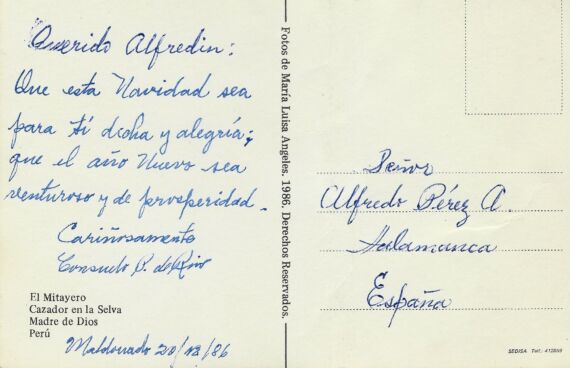 Querido Alfredin:
Que esta Navidad sea
para tí dcoha y alegría;
que el año Nuevo sea
venturoso y de prosperidad.
Cariñosamente
Consuelo P. de
El Mitayero
Cazador en la Selva
Madre de Dios
Perú
Maldonado 20/12/86
Fotos de María Luisa Angeles. 1986. Derechos Reservados.
Señor
Alfredo Pérez A.
Salamanca
España
SEDISA Telf.: